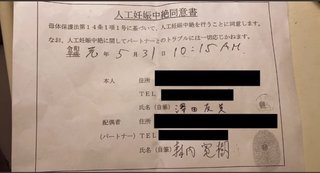 人工妊娠中絶同意書
母体保護法第14条1項1号に基づいて、人工妊娠中絶を行うことに同意します。
なお、人工妊娠中絶に関してパートナーとのトラブルには一切応じかねます。
令和 元年 5月 31日 10:15 AM
本人 住所
TEL
氏名(自筆) 澤田
配偶者 住所
(パートナー) TEL
氏名(自筆) 寛樹